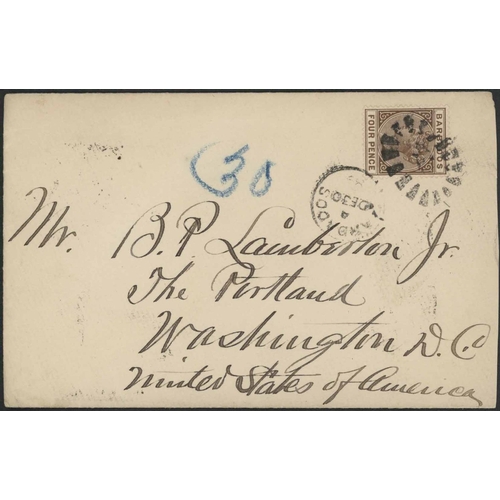 BARBADOS
FOUR PENCE
30
BARBADOS
A
DE 30
Mr. B. P. Lamberton Jr.
The Portland
Washington D. C.
United States of America